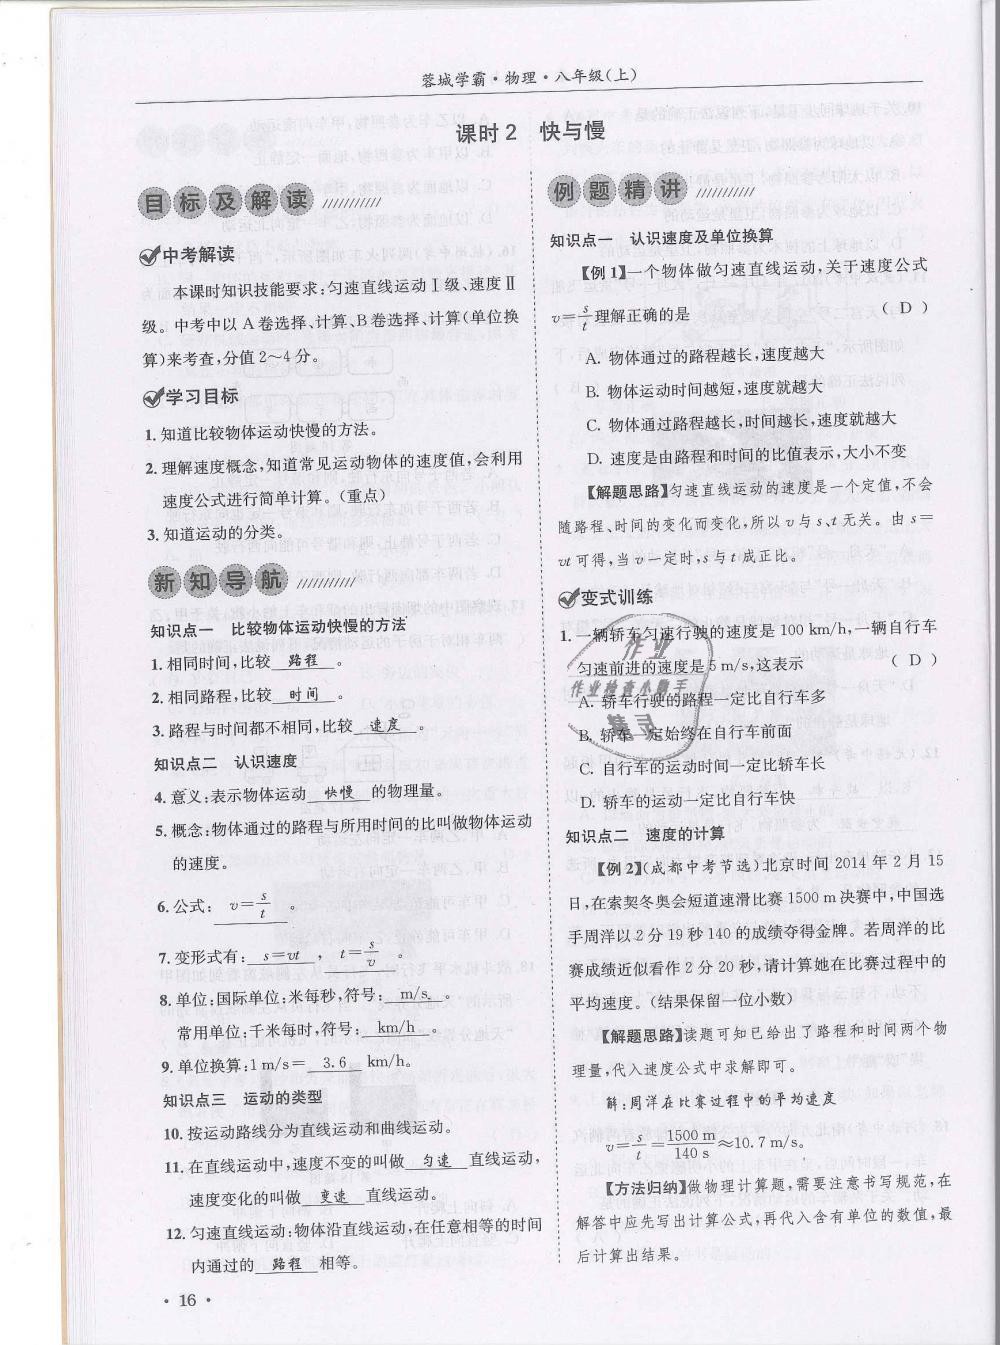 蓉城学霸·物理·八年级(上)
课时2 快与慢
目标及解读
中考解读
本课时知识技能要求:匀速直线运动Ⅰ级、速度Ⅱ
级。中考中以A卷选择、计算、B卷选择、计算(单位换
算)来考查,分值2~4分。
学习目标
1. 知道比较物体运动快慢的方法。
2. 理解速度概念,知道常见运动物体的速度值,会利用
速度公式进行简单计算。(重点)
3. 知道运动的分类。
新知导航
知识点一 比较物体运动快慢的方法
1. 相同时间,比较 路程 。
2. 相同路程,比较 时间 。
3. 路程与时间都不相同,比较 速度 。
知识点二 认识速度
4. 意义:表示物体运动 快慢 的物理量。
5. 概念:物体通过的路程与所用时间的比叫做物体运动
的速度。
6. 公式: v=s/t 。
7. 变形式有: s=vt , t=s/v 。
8. 单位:国际单位:米每秒,符号: m/s 。
常用单位:千米每时,符号: km/h 。
9. 单位换算:1 m/s= 3.6 km/h。
知识点三 运动的类型
10. 按运动路线分为直线运动和曲线运动。
11. 在直线运动中,速度不变的叫做 匀速 直线运动,
速度变化的叫做 变速 直线运动。
12. 匀速直线运动:物体沿直线运动,在任意相等的时间
内通过的 路程 相等。
·16·
例题精讲
知识点一 认识速度及单位换算
【例1】一个物体做匀速直线运动,关于速度公式
v=s/t理解正确的是 ( D )
A. 物体通过的路程越长,速度越大
B. 物体运动时间越短,速度就越大
C. 物体通过路程越长,时间越长,速度就越大
D. 速度是由路程和时间的比值表示,大小不变
【解题思路】匀速直线运动的速度是一个定值,不会
随路程、时间的变化而变化,所以v与s、t无关。由s=
vt可得,当v一定时,s与t成正比。
变式训练
1. 一辆轿车匀速行驶的速度是100 km/h,一辆自行车
匀速前进的速度是5 m/s,这表示 ( D )
作业
作业检查小助手
A. 轿车行驶的路程一定比自行车多
B. 轿车一定始终在自行车前面
C. 自行车的运动时间一定比轿车长
D. 轿车的运动一定比自行车快
知识点二 速度的计算
【例2】(成都中考节选)北京时间2014年2月15
日,在索契冬奥会短道速滑比赛1500 m决赛中,中国选
手周洋以2分19秒140的成绩夺得金牌。若周洋的比
赛成绩近似看作2分20秒,请计算她在比赛过程中的
平均速度。(结果保留一位小数)
【解题思路】读题可知已给出了路程和时间两个物
理量,代入速度公式中求解即可。
解:周洋在比赛过程中的平均速度
v=s/t=1500 m/140 s≈10.7 m/s。
【方法归纳】做物理计算题,需要注意书写规范,在
解答中应先写出计算公式,再代入含有单位的数值,最
后计算出结果。